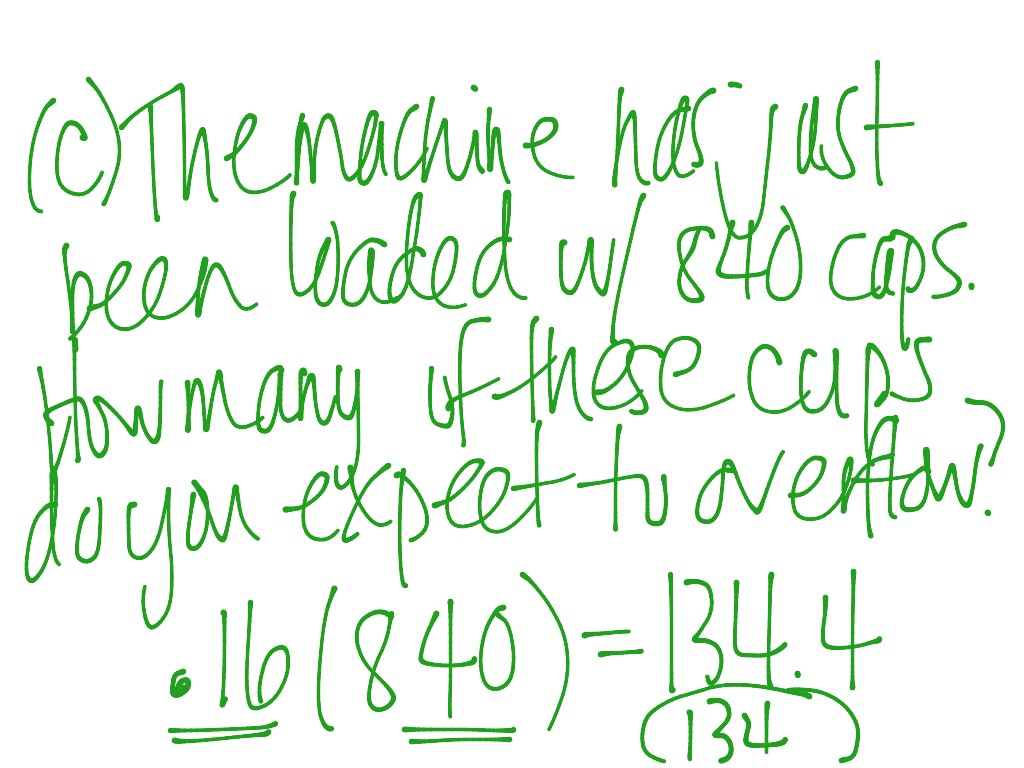 (c) The machine has just
been loaded w/ 840 cups.
How many of these cups
do you expect to overflow?
.16 (840) = 134.4
(134)